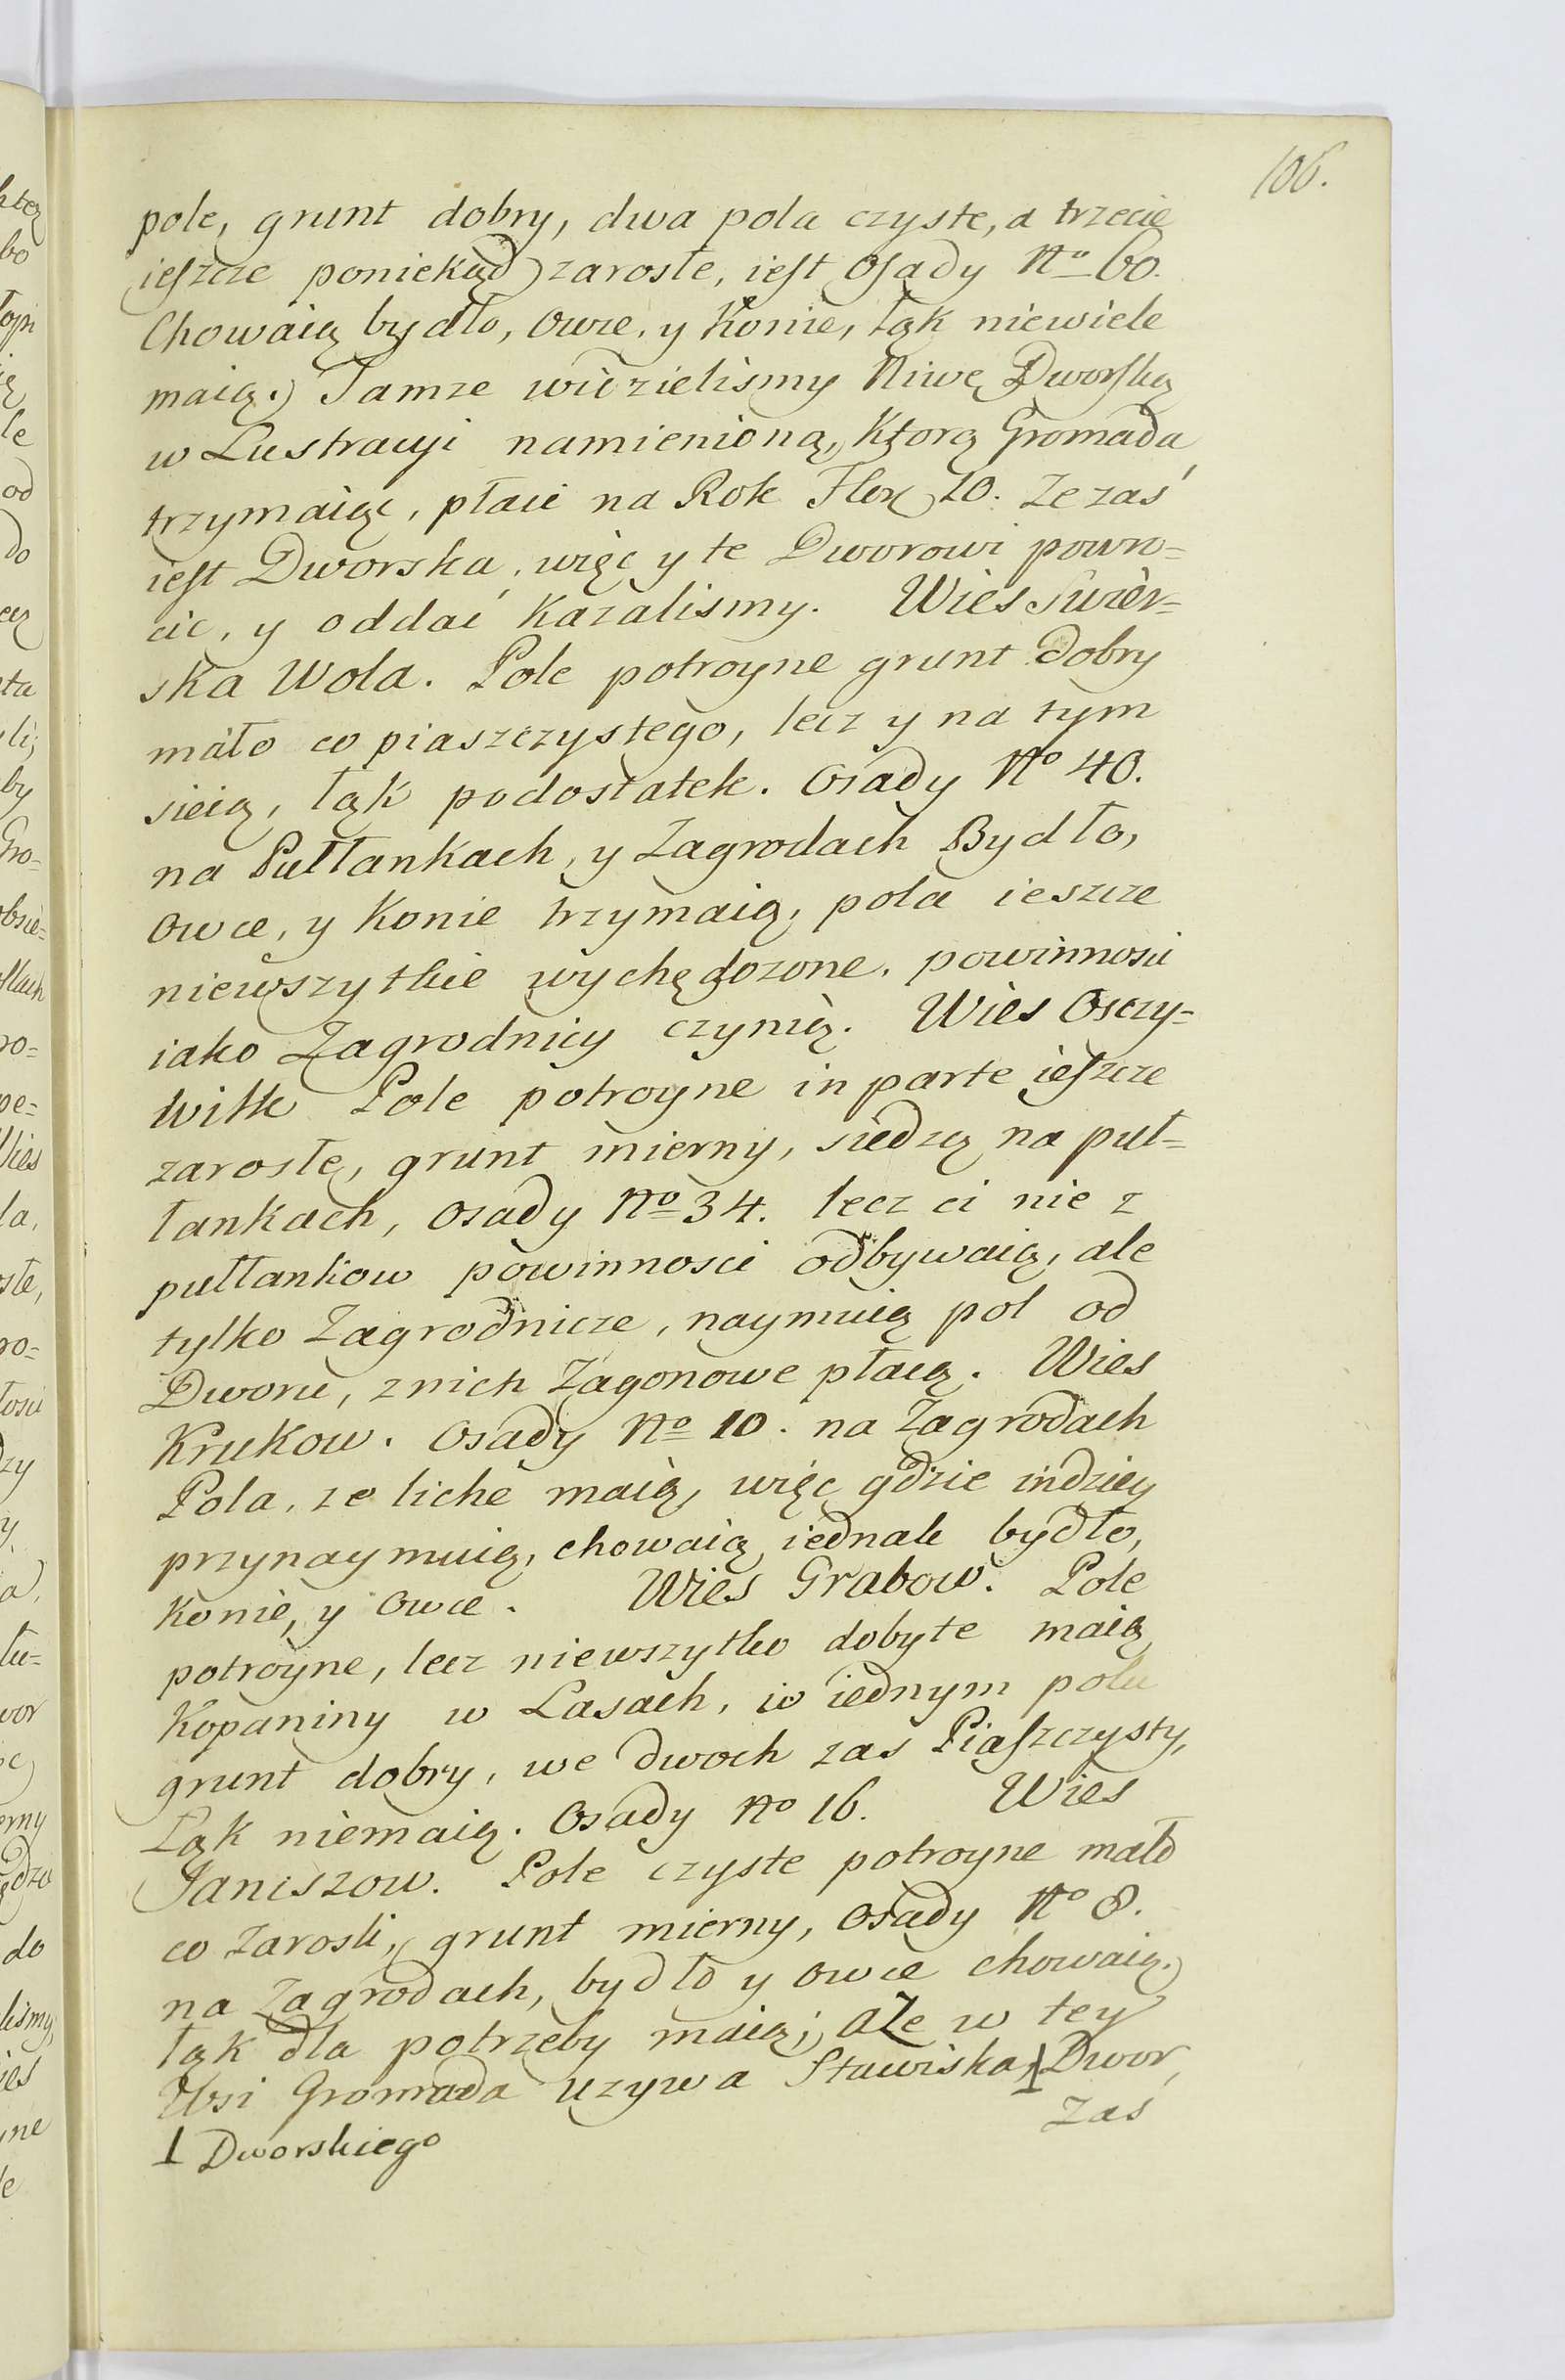 106.
pole, grunt dobry, dwa pola czyste, a trzecie
ieszcze poniekąd zarosłe, iest Osady No 60.
Chowaią bydło, Owce, y Konie, łąk niewiele
maią. Tamze widzielismy Niwę Dworską
w Lustracyi namienioną, Ktorą Gromada
trzymaiąc, płaci na Rok Flor 20. Ze zaś
iest Dworska, więc y te Dworowi powro=
cic, y oddać Kazalismy. Wies Swier=
ska Wola. Pole potroyne grunt dobry
mało co piaszczystego, lecz y na tym
sieią, łąk podostatek. Osady No 40.
na Pułłankach, y Zagrodach Bydło,
Owce, y Konie trzymaią, pola ieszcze
niewszytkie wychędozone, powinnosci
iako Zagrodnicy czynią. Wies Osczy=
witk Pole potroyne in parte ieszcze
zarosłe, grunt mierny, siedzą na puł=
łankach, Osady No 34. lecz ci nie z
pułłankow powinnosci odbywaią, ale
tylko Zagrodnicze, naymuią pol od
Dworu, z nich Zagonowe płacą. Wies
Krukow. Osady No 10. na Zagrodach
Pola, ze liche maią, więc gdzie indziey
przynaymuią, chowaią iednak bydło,
Konie, y Owce. Wies Grabow. Pole
potroyne, lecz niewszytko dobyte maią
Kopaniny w Lasach, w iednym polu
grunt dobry, we dwoch zas Piaszczysty,
Łąk niemaią. Osady No 16. Wies
Janiszow. Pole czyste potroyne mało
co Zarosli, grunt mierny, Osady No 8.
na Zagrodach, bydło y owce chowaią.
łąk dla potrzeby maią; aZe w tey
Wsi Gromada uzywa Stawiska ⊥ Dwor,
zas
⊥ Dworskiego